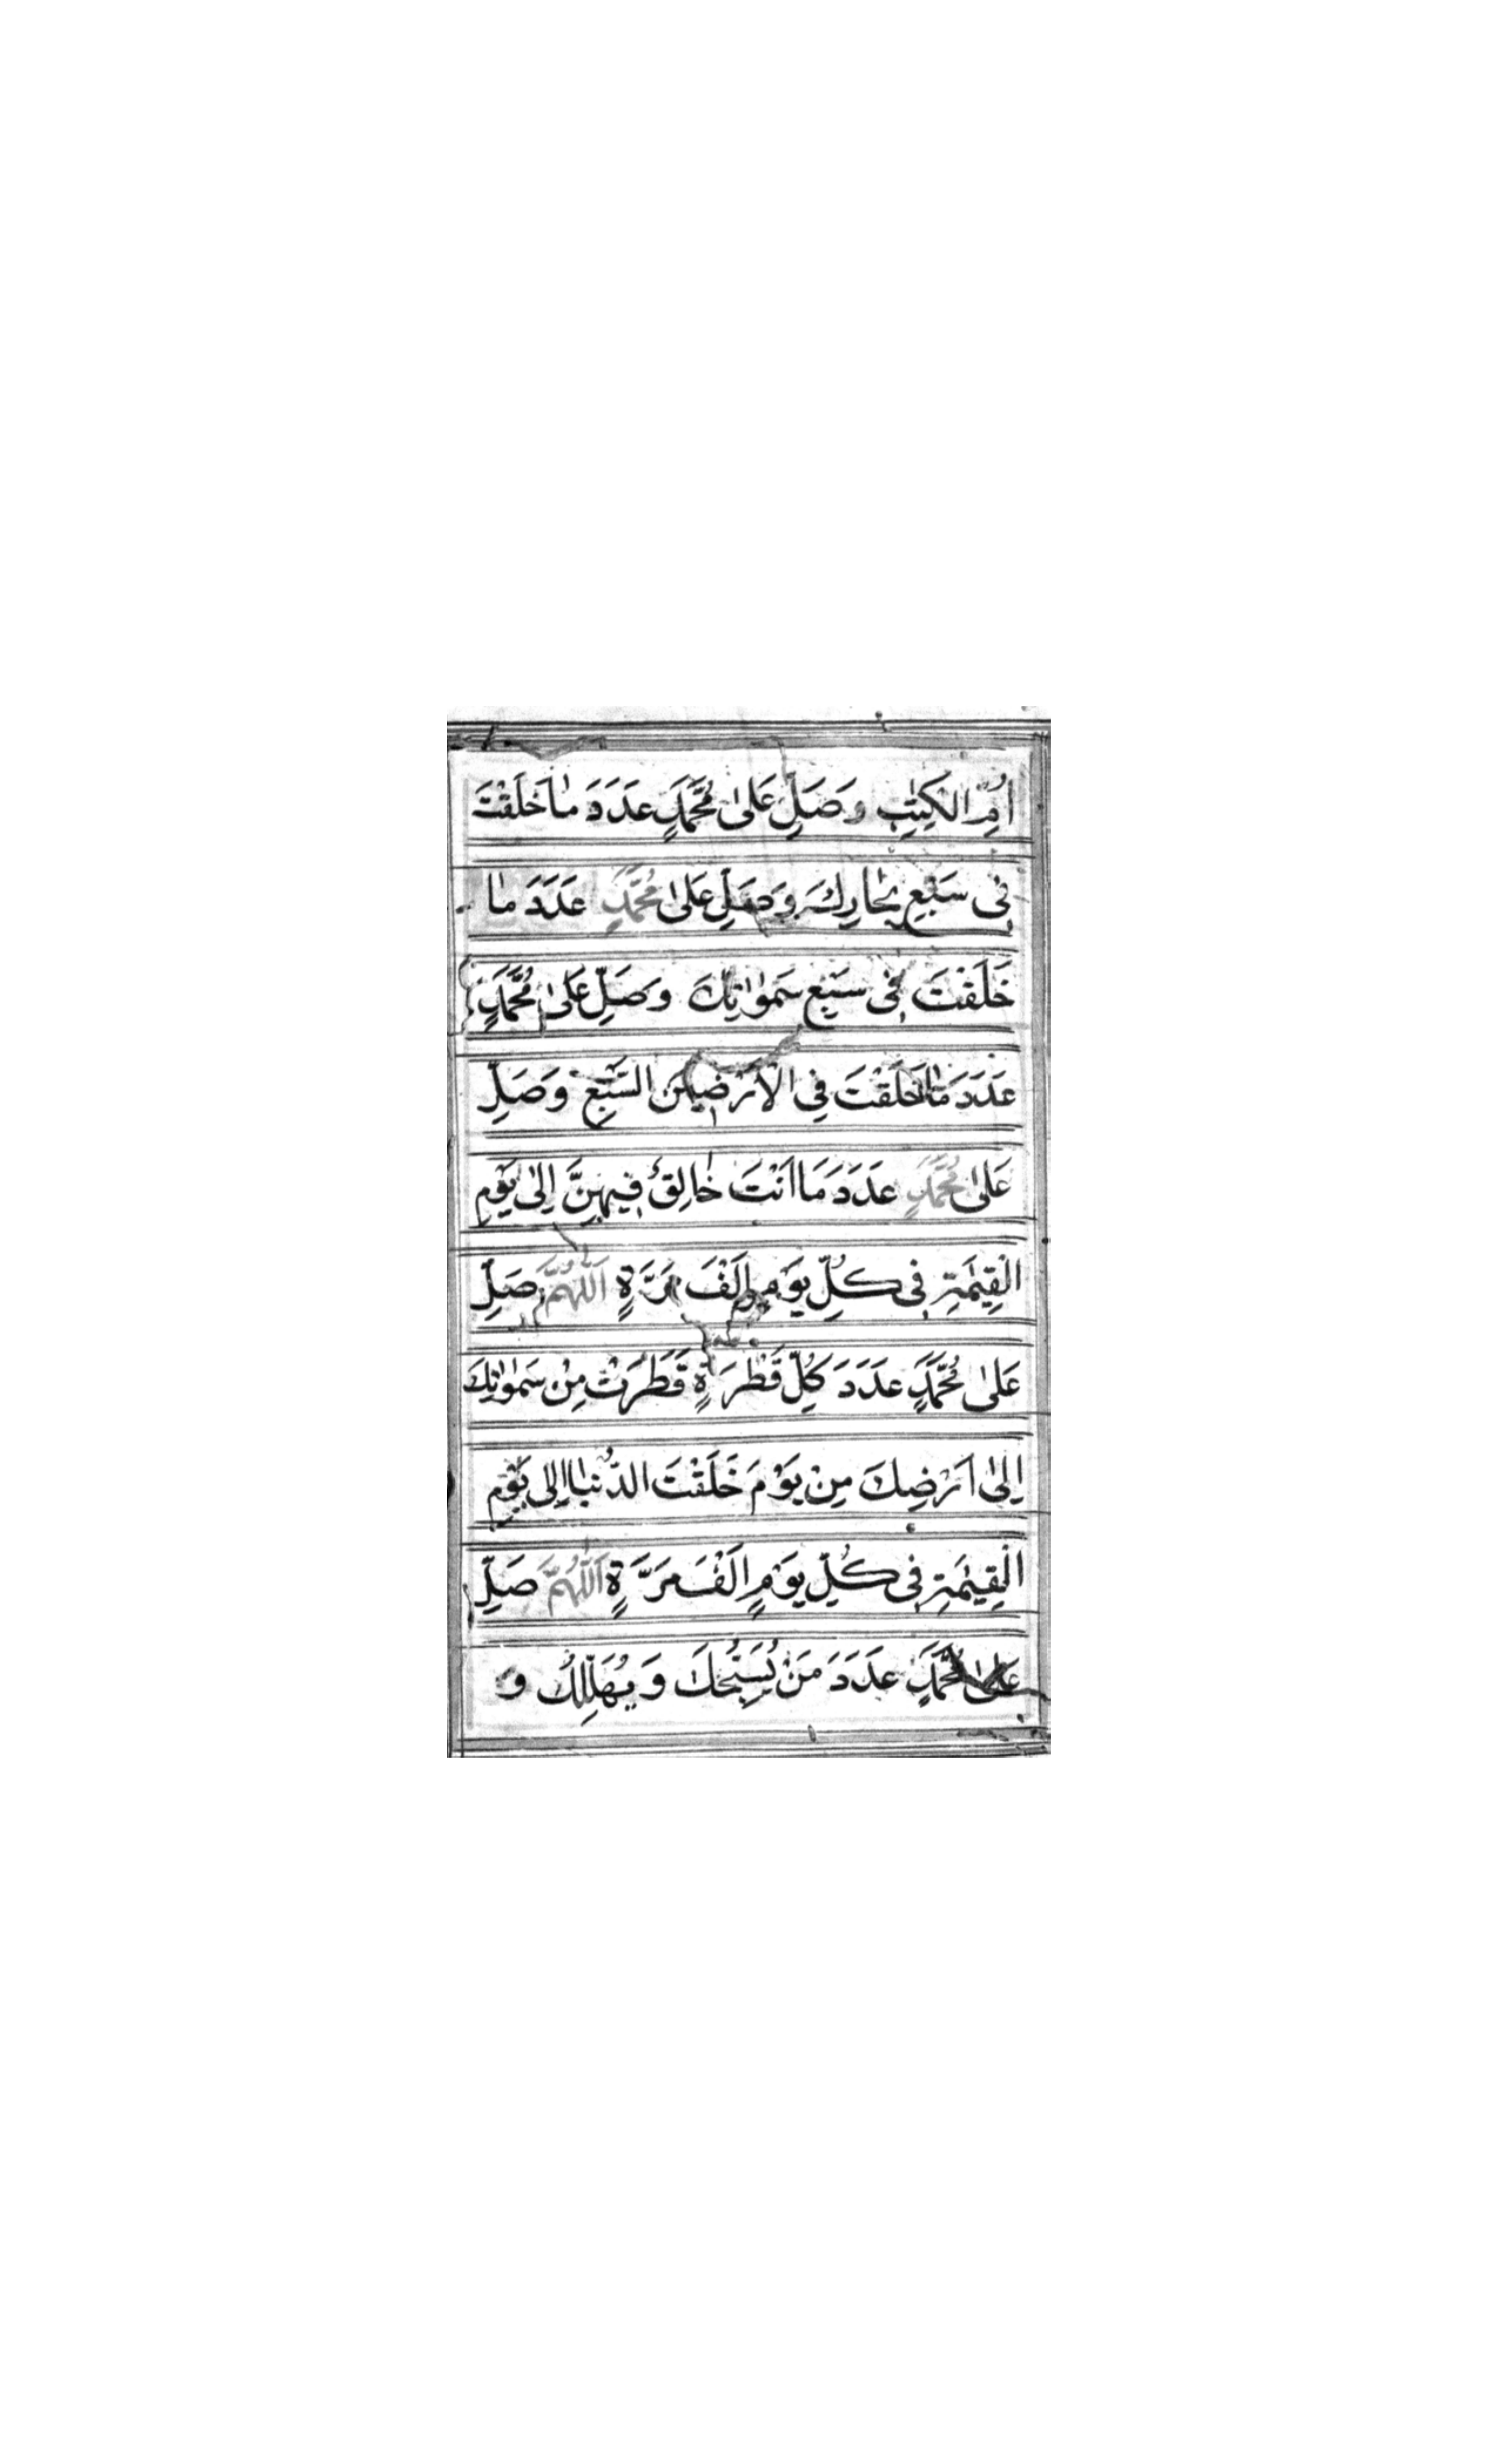 اُمِّ الْكِتٰبِ وَصَلِّ عَلٰى مُحَمَّدٍ عَدَدَ مَا خَلَقْتَ
فِى سَبْعِ بِحَارِكَ وَصَلِّ عَلٰى مُحَمَّدٍ عَدَدَ مَا
خَلَقْتَ فِى سَبْعِ سَمٰوٰاتِكَ وَصَلِّ عَلٰى مُحَمَّدٍ
عَدَدَ مَا خَلَقْتَ فِى الْاَرَضِيْنَ السَّبْعِ وَصَلِّ
عَلٰى مُحَمَّدٍ عَدَدَ مَا اَنْتَ خَالِقٌ فِيْهِنَّ اِلٰى يَوْمِ
الْقِيٰمَةِ فِى كُلِّ يَوْمٍ اَلْفَ مَرَّةٍ اَللّٰهُمَّ صَلِّ
عَلٰى مُحَمَّدٍ عَدَدَ كُلِّ قَطْرَةٍ قَطَرَتْ مِنْ سَمٰوٰاتِكَ
اِلٰى اَرْضِكَ مِنْ يَوْمَ خَلَقْتَ الدُّنْيَا اِلٰى يَوْمِ
الْقِيٰمَةِ فِى كُلِّ يَوْمٍ اَلْفَ مَرَّةٍ اَللّٰهُمَّ صَلِّ
عَلٰى مُحَمَّدٍ عَدَدَ مَنْ يُسَبِّحُكَ وَ يُهَلِّلُكَ وَ